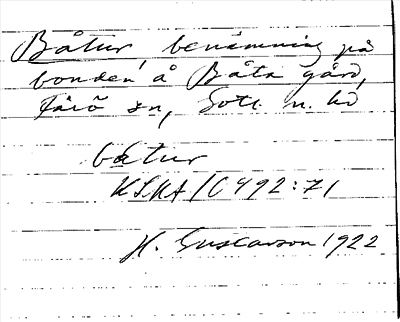 Båtur benämning på
bonden å Båta gård,
Fårö sn, Gotl. n. hd
båtur
H. Gustavson 1922